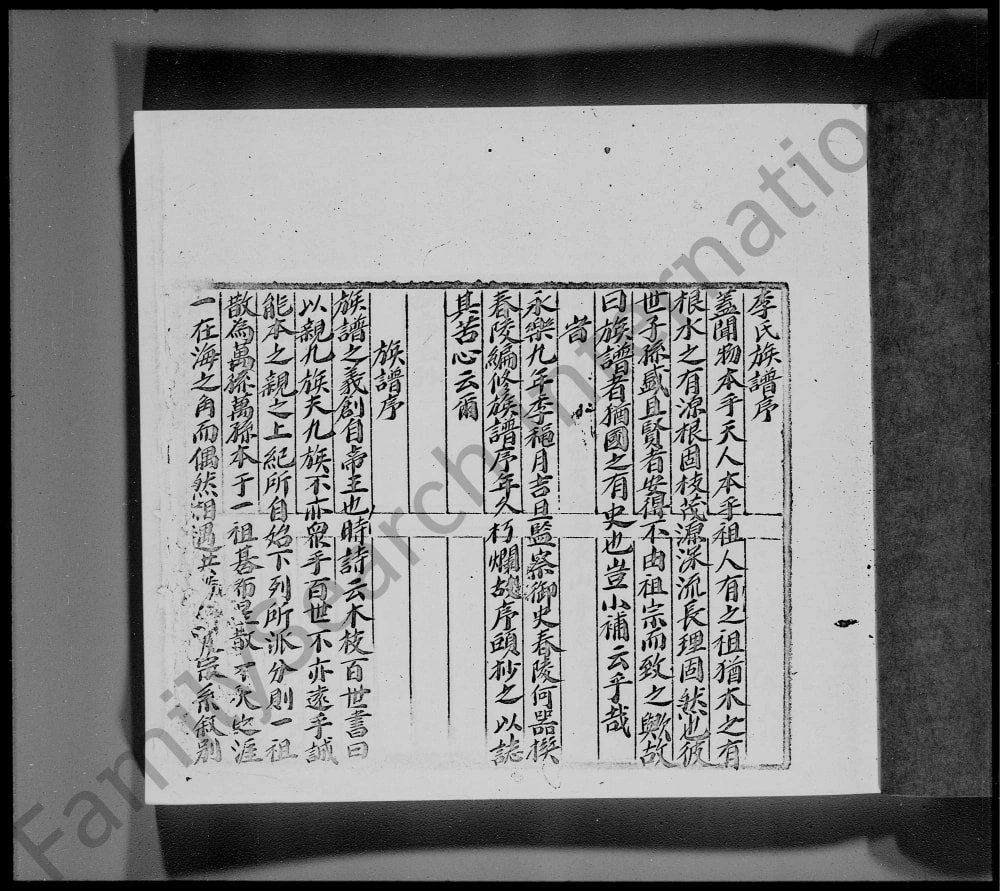 李氏族譜序
蓋聞物本乎天人本乎祖人有之祖猶木之有
根水之有源根固枝茂源深流長理固然也彼
世子孫盛且賢者安得不由祖宗而致之歟故
曰族譜者猶國之有史也豈小補云乎哉
旹
永樂九年季穐月吉旦監察御史舂陵何器撰
舂陵編修族譜序年久朽爛故序頭抄之以誌
其苦心云爾
族譜序
族譜之義創自帝王也時詩云木枝百世書曰
以親九族夫九族不亦衆乎百世不亦遠乎誠
能本之親之上紀所自始下列所派分則一祖
散為萬孫萬孫本于一祖碁布星散天之涯
一在海之角而偶然相遇共宗系叙別
FamilySearch Internatio